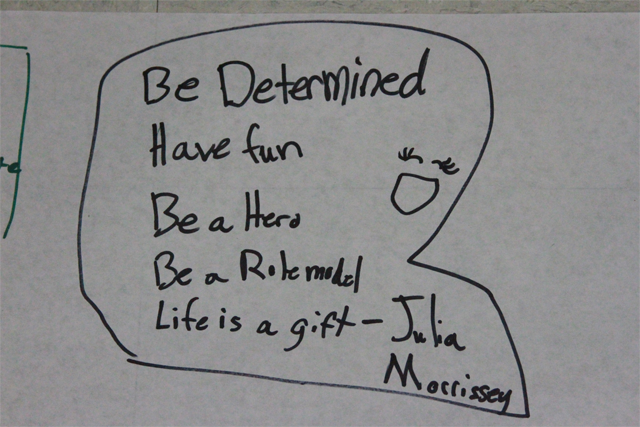 Be Determined
Have fun
Be a Hero
Be a Rolemodel
Life is a gift - Julia
Morrissey